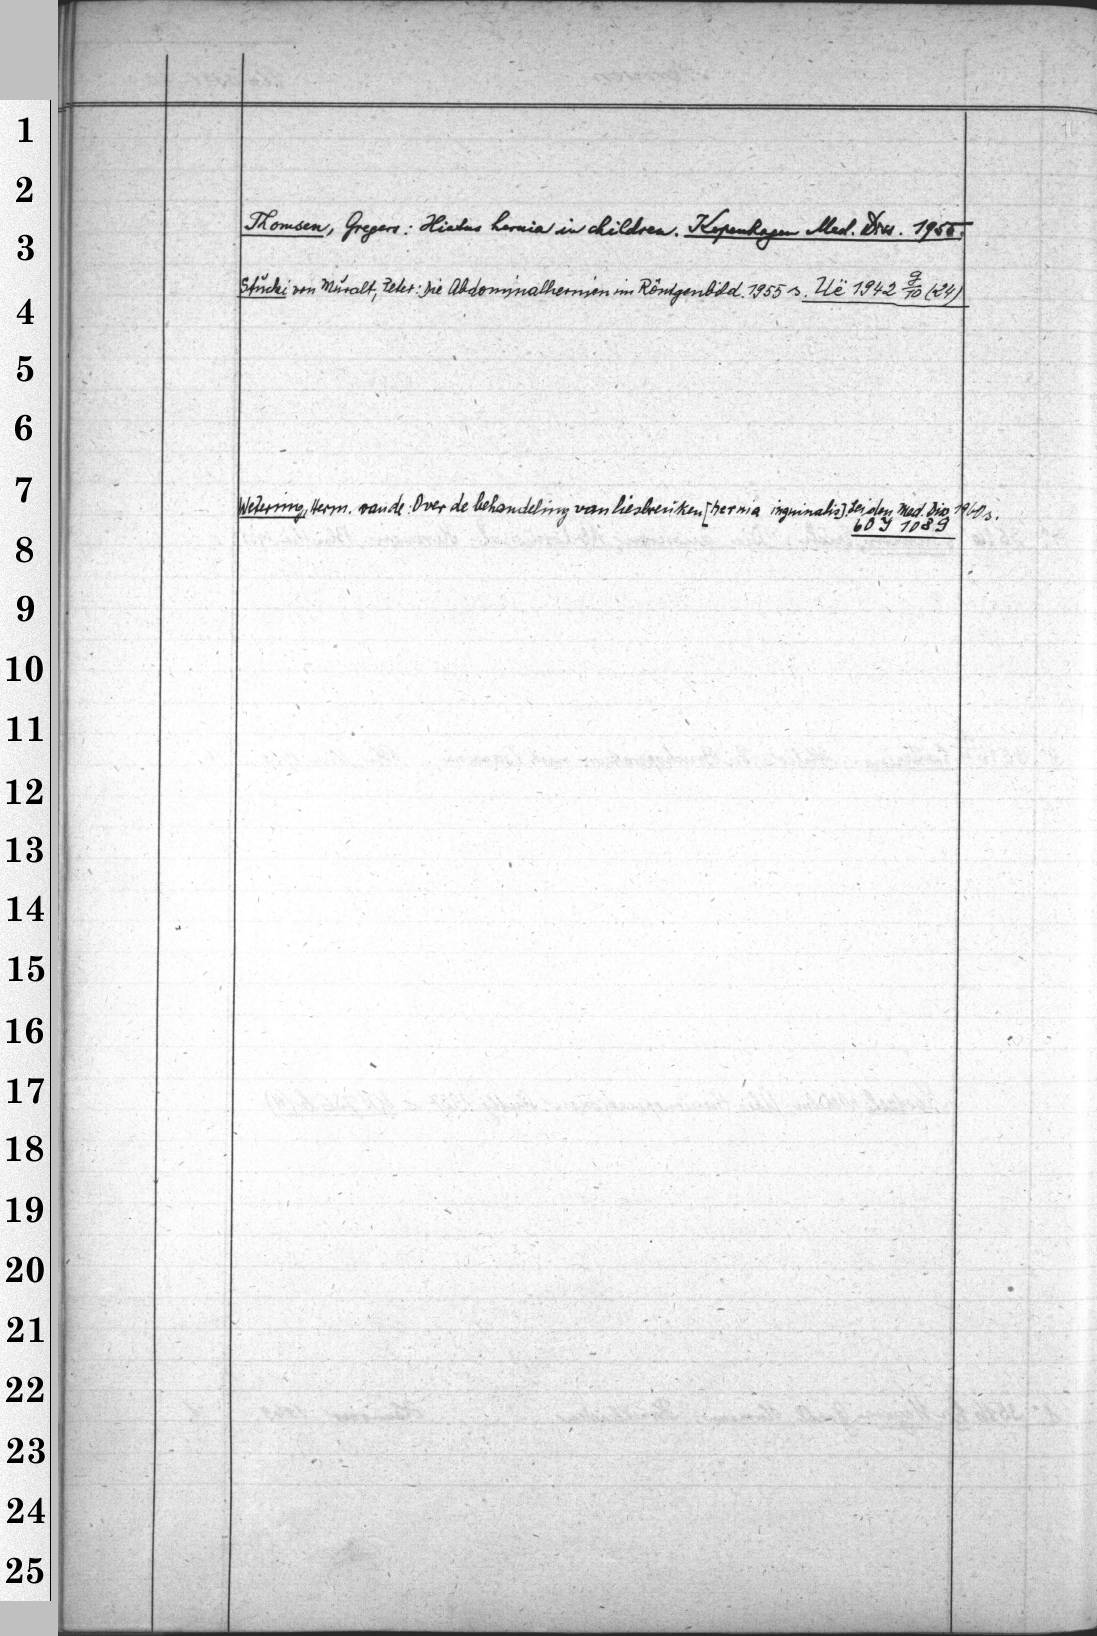 1
2
Thomsen, Gregers: Hiatus hernia in children. Kopenhagen Med. Diss. 1955.
3
Stucki von Muralt, Peter: Die Abdominalhernien im Röntgenbild. 1955 s. Uë 1942 9/10 (24)
4
5
6
7
Wetering, Herm. van de: Over de behandeling van liesbreuken [hernia inguinalis] Leiden Med. Diss 1960 s.
60 y 1089
8
9
10
11
12
13
14
15
16
17
18
19
20
21
22
23
24
25